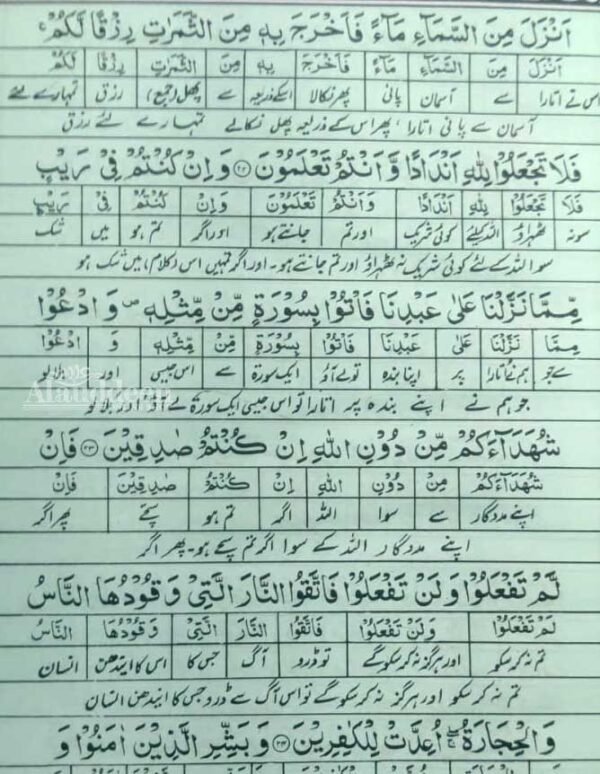 اَنْزَلَ مِنَ السَّمَآءِ مَآءً فَاَخْرَجَ بِهٖ مِنَ الثَّمَرٰتِ رِزْقًا لَّكُمْ ۚ
اَنْزَلَ مِنَ السَّمَآءِ مَآءً فَاَخْرَجَ بِهٖ مِنَ الثَّمَرٰتِ رِزْقًا لَّكُمْ
اس نے اتارا سے آسمان پانی پھر نکالا اسکے ذریعہ سے پھل (جمع) رزق تمہارے لئے
آسمان سے پانی اتارا، پھر اس کے ذریعہ پھل نکالے تمہارے لئے رزق
فَلَا تَجْعَلُوْا لِلّٰهِ اَنْدَادًا وَّاَنْتُمْ تَعْلَمُوْنَ ﴿۲۲﴾ وَاِنْ كُنْتُمْ فِیْ رَیْبٍ
فَلَا تَجْعَلُوْا لِلّٰهِ اَنْدَادًا وَّاَنْتُمْ تَعْلَمُوْنَ وَاِنْ كُنْتُمْ فِیْ رَیْبٍ
سو نہ ٹھہراؤ اللہ کیلئے کوئی شریک اور تم جانتے ہو اور اگر تم ہو میں شک
سو اللہ کے لئے کوئی شریک نہ ٹھہراؤ اور تم جانتے ہو۔ اور اگر تمہیں اس (کلام) میں شک ہو
مِّمَّا نَزَّلْنَا عَلٰی عَبْدِنَا فَاْتُوْا بِسُوْرَةٍ مِّنْ مِّثْلِهٖ ۪ وَادْعُوْا
مِمَّا نَزَّلْنَا عَلٰی عَبْدِنَا فَاْتُوْا بِسُوْرَةٍ مِّنْ مِّثْلِهٖ وَ ادْعُوْا
سے جو ہم نے اتارا پر اپنا بندہ تو لے آؤ ایک سورۃ سے اس جیسی اور بلا لو
جو ہم نے اپنے بندہ پر اتارا تو اس جیسی ایک سورۃ لے آؤ اور بلا لو
Alauddeen
شُهَدَآءَكُمْ مِّنْ دُوْنِ اللّٰهِ اِنْ كُنْتُمْ صٰدِقِیْنَ ﴿۲۳﴾ فَاِنْ
شُهَدَآءَكُمْ مِنْ دُوْنِ اللّٰهِ اِنْ كُنْتُمْ صٰدِقِیْنَ فَاِنْ
اپنے مددگار سے سوا اللہ اگر تم ہو سچے پھر اگر
اپنے مددگار اللہ کے سوا اگر تم سچے ہو۔ پھر اگر
لَّمْ تَفْعَلُوْا وَلَنْ تَفْعَلُوْا فَاتَّقُوا النَّارَ الَّتِیْ وَقُوْدُهَا النَّاسُ
لَمْ تَفْعَلُوْا وَلَنْ تَفْعَلُوْا فَاتَّقُوا النَّارَ الَّتِیْ وَقُوْدُهَا النَّاسُ
تم نہ کر سکو اور ہرگز نہ کر سکو گے تو ڈرو آگ جس کا اس کا ایندھن انسان
تم نہ کر سکو اور ہرگز نہ کر سکو گے تو اس آگ سے ڈرو جس کا ایندھن انسان
وَالْحِجَارَةُ ۖۚ اُعِدَّتْ لِلْكٰفِرِیْنَ ﴿۲۴﴾ وَبَشِّرِ الَّذِیْنَ اٰمَنُوْا وَ